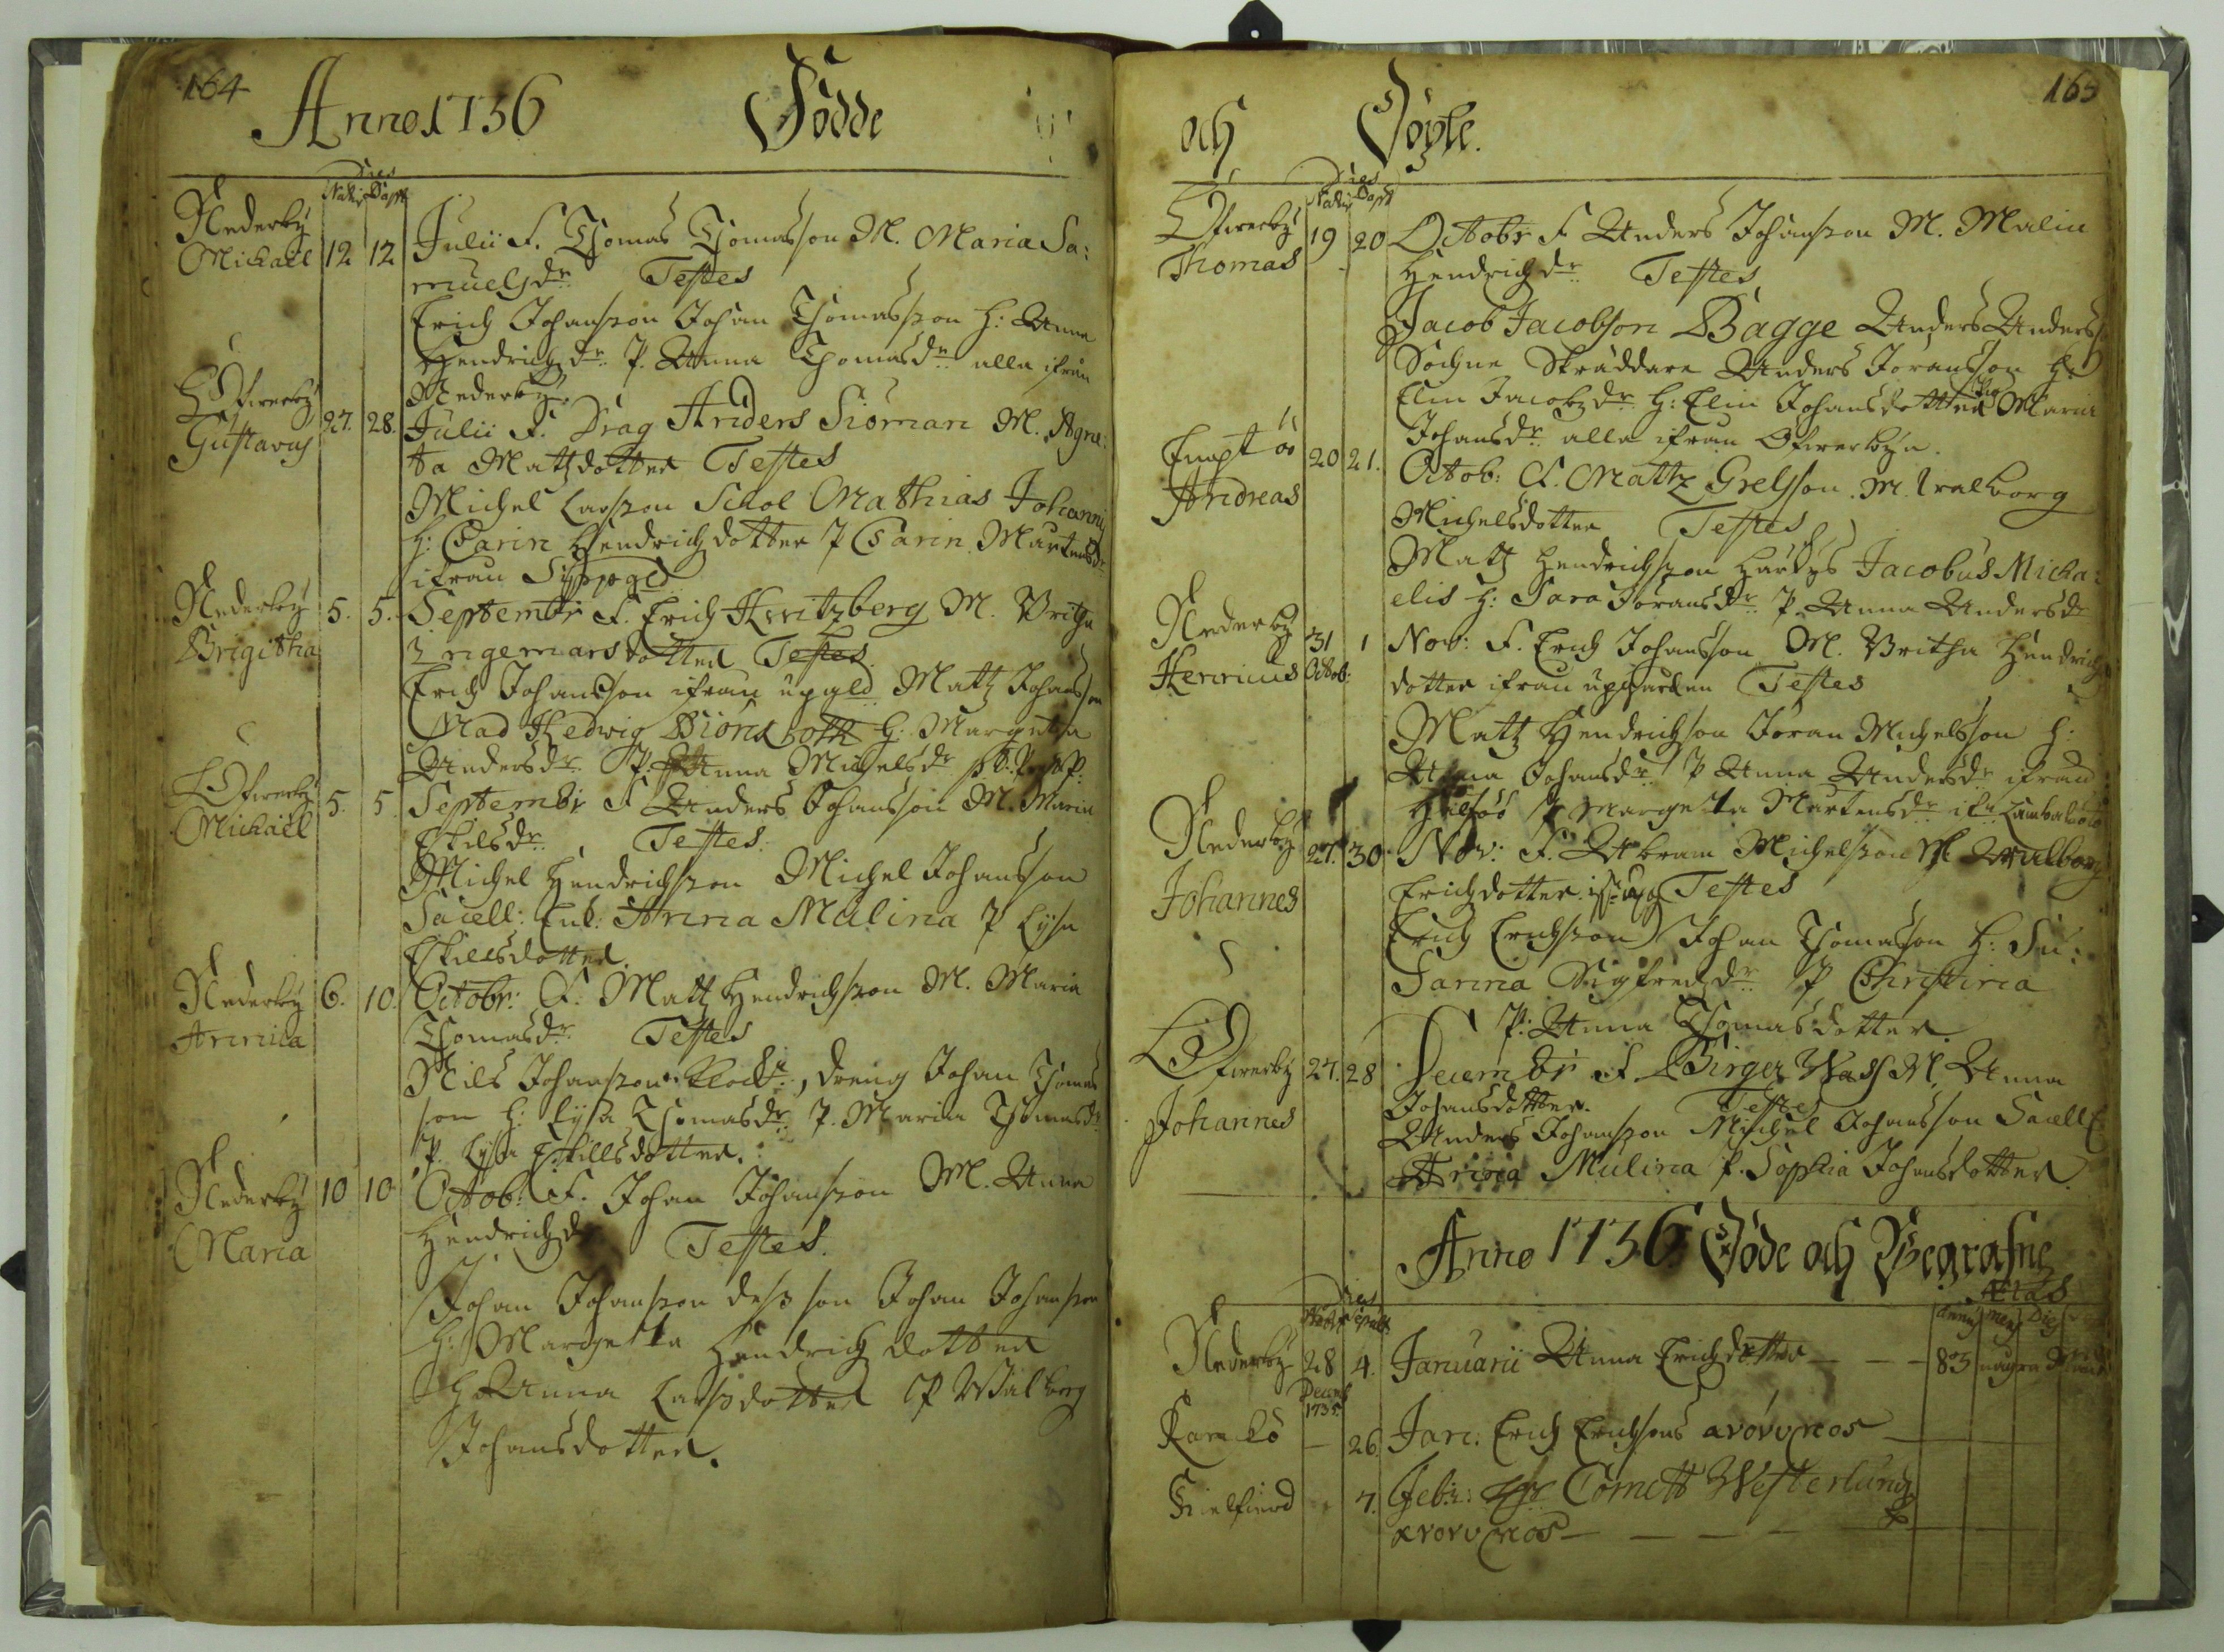 164
Anno 1736 Födde
Dies
Nativ Bapt
Nederby
Michaël 12 12 Julii F. Thomas Thomasson M. Maria Sa:
muelsdr Testes
Erich Johansson Johan Thomasson H: Anna
Hendrichdr P. Anna Thomasdr alla ifrån
Nederby.
Öfwerby
Gustavus 27. 28. Julii F. Drag Anders Siöman M. Agne:
ta Mattzdotter Testes
Michel Larsson Mathias Johannis
H: Carin Hendrichdotter P Carin Mårtensdr
ifrån
Nederby
Brigitha 5. 5. Septembr F. Erich Kreitzberg M. Britha
Ingemarsdotter Testes
Erich Johansson ifrån upgld Mattz Johansson
Mad Hedwig H: Margetha
Andersdr P. Anna Michelsdr
Öfwerby
Michaël 5. 5. Septembr F Anders Johansson M. Maria
Eskilsdr Testes.
Michel Hendrichsson Michel Johansson
Sacell: Anna Mulina P Lysa
Eskillsdotter.
Nederby
Annica 6. 10. Octobr: F. Mattz Hendrichsson M. Maria
Thomasdr Testes
Nils Johansson Klock:, dreng Johan Thomas
son H: Lysa Thomasdr P. Maria Thomasdr
P. Lysa Eskillsdotter.
Nederby
Maria 10 10 Octob: F. Johan Johansson M. Anna
Hendrichd Testes.
Johan Johansson dess son Johan Johansson
H: Margeta Hendrich dotter
H Anna Larsdotter P Wälborg
Johansdotter.
165
och Döpte.
Dies
Nativ Bapt
Öfwerby
Thomas 19 20 Octobr F Anders Johansson M. Malin
Hendrichdr Testes
Jacob Jacobson Bagge Anders Anders
Sochne Skräddare Anders Jöransson H.
Elin Jacobzdr H: Elin Johansdotter Maria
Johansdr alla ifrån Öfwerbyn.
Andreas 20 21. Octob: F. Mattz Grelsson M. Walborg
Michelsdotter Testes
Mattz Hendrichsson Jacobus Micha:
elis H: Sara Jöransdr P. Anna Andersdr
Nederby
Henricus 31 Octob: 1 Nov: F. Erich Johansson M. Britha Hendrichs
dotter ifrån upgården Testes
Mattz Hendrichson Jöran Michelsson H:
Anna Johansdr P Anna Andersdr ifrån
P Margeta Mårtensdr
Nederby
Johannes 27. 30. Nov: F. Abram Michelsson M Walborg
Erichdotter Testes
Erich Erichsson Johan Thomasson H: Su:
sanna Sigfredzdr P Christina
P: Anna Thomasdotter.
Öfwerby
Johannes 27. 28 Decembr F. Birger Wass M. Anna
Johansdotter. Testes
Anders Johansson Michel Johansson Sacell
Anna Mulina P. Sophia Johansdotter.
Anno 1736 Döde och Begrafne
Ætas
Dies
Mort Sepult Anni Mens Dies
Nederby 28 Decemb 1735 4. Januarii Anna Erichdotter — — 85 några
Ramsö — 26. Jan. Erich Erichsons ανόνυμος
7. Febr: Cornett Westerlunds
ανονυμος — — — —